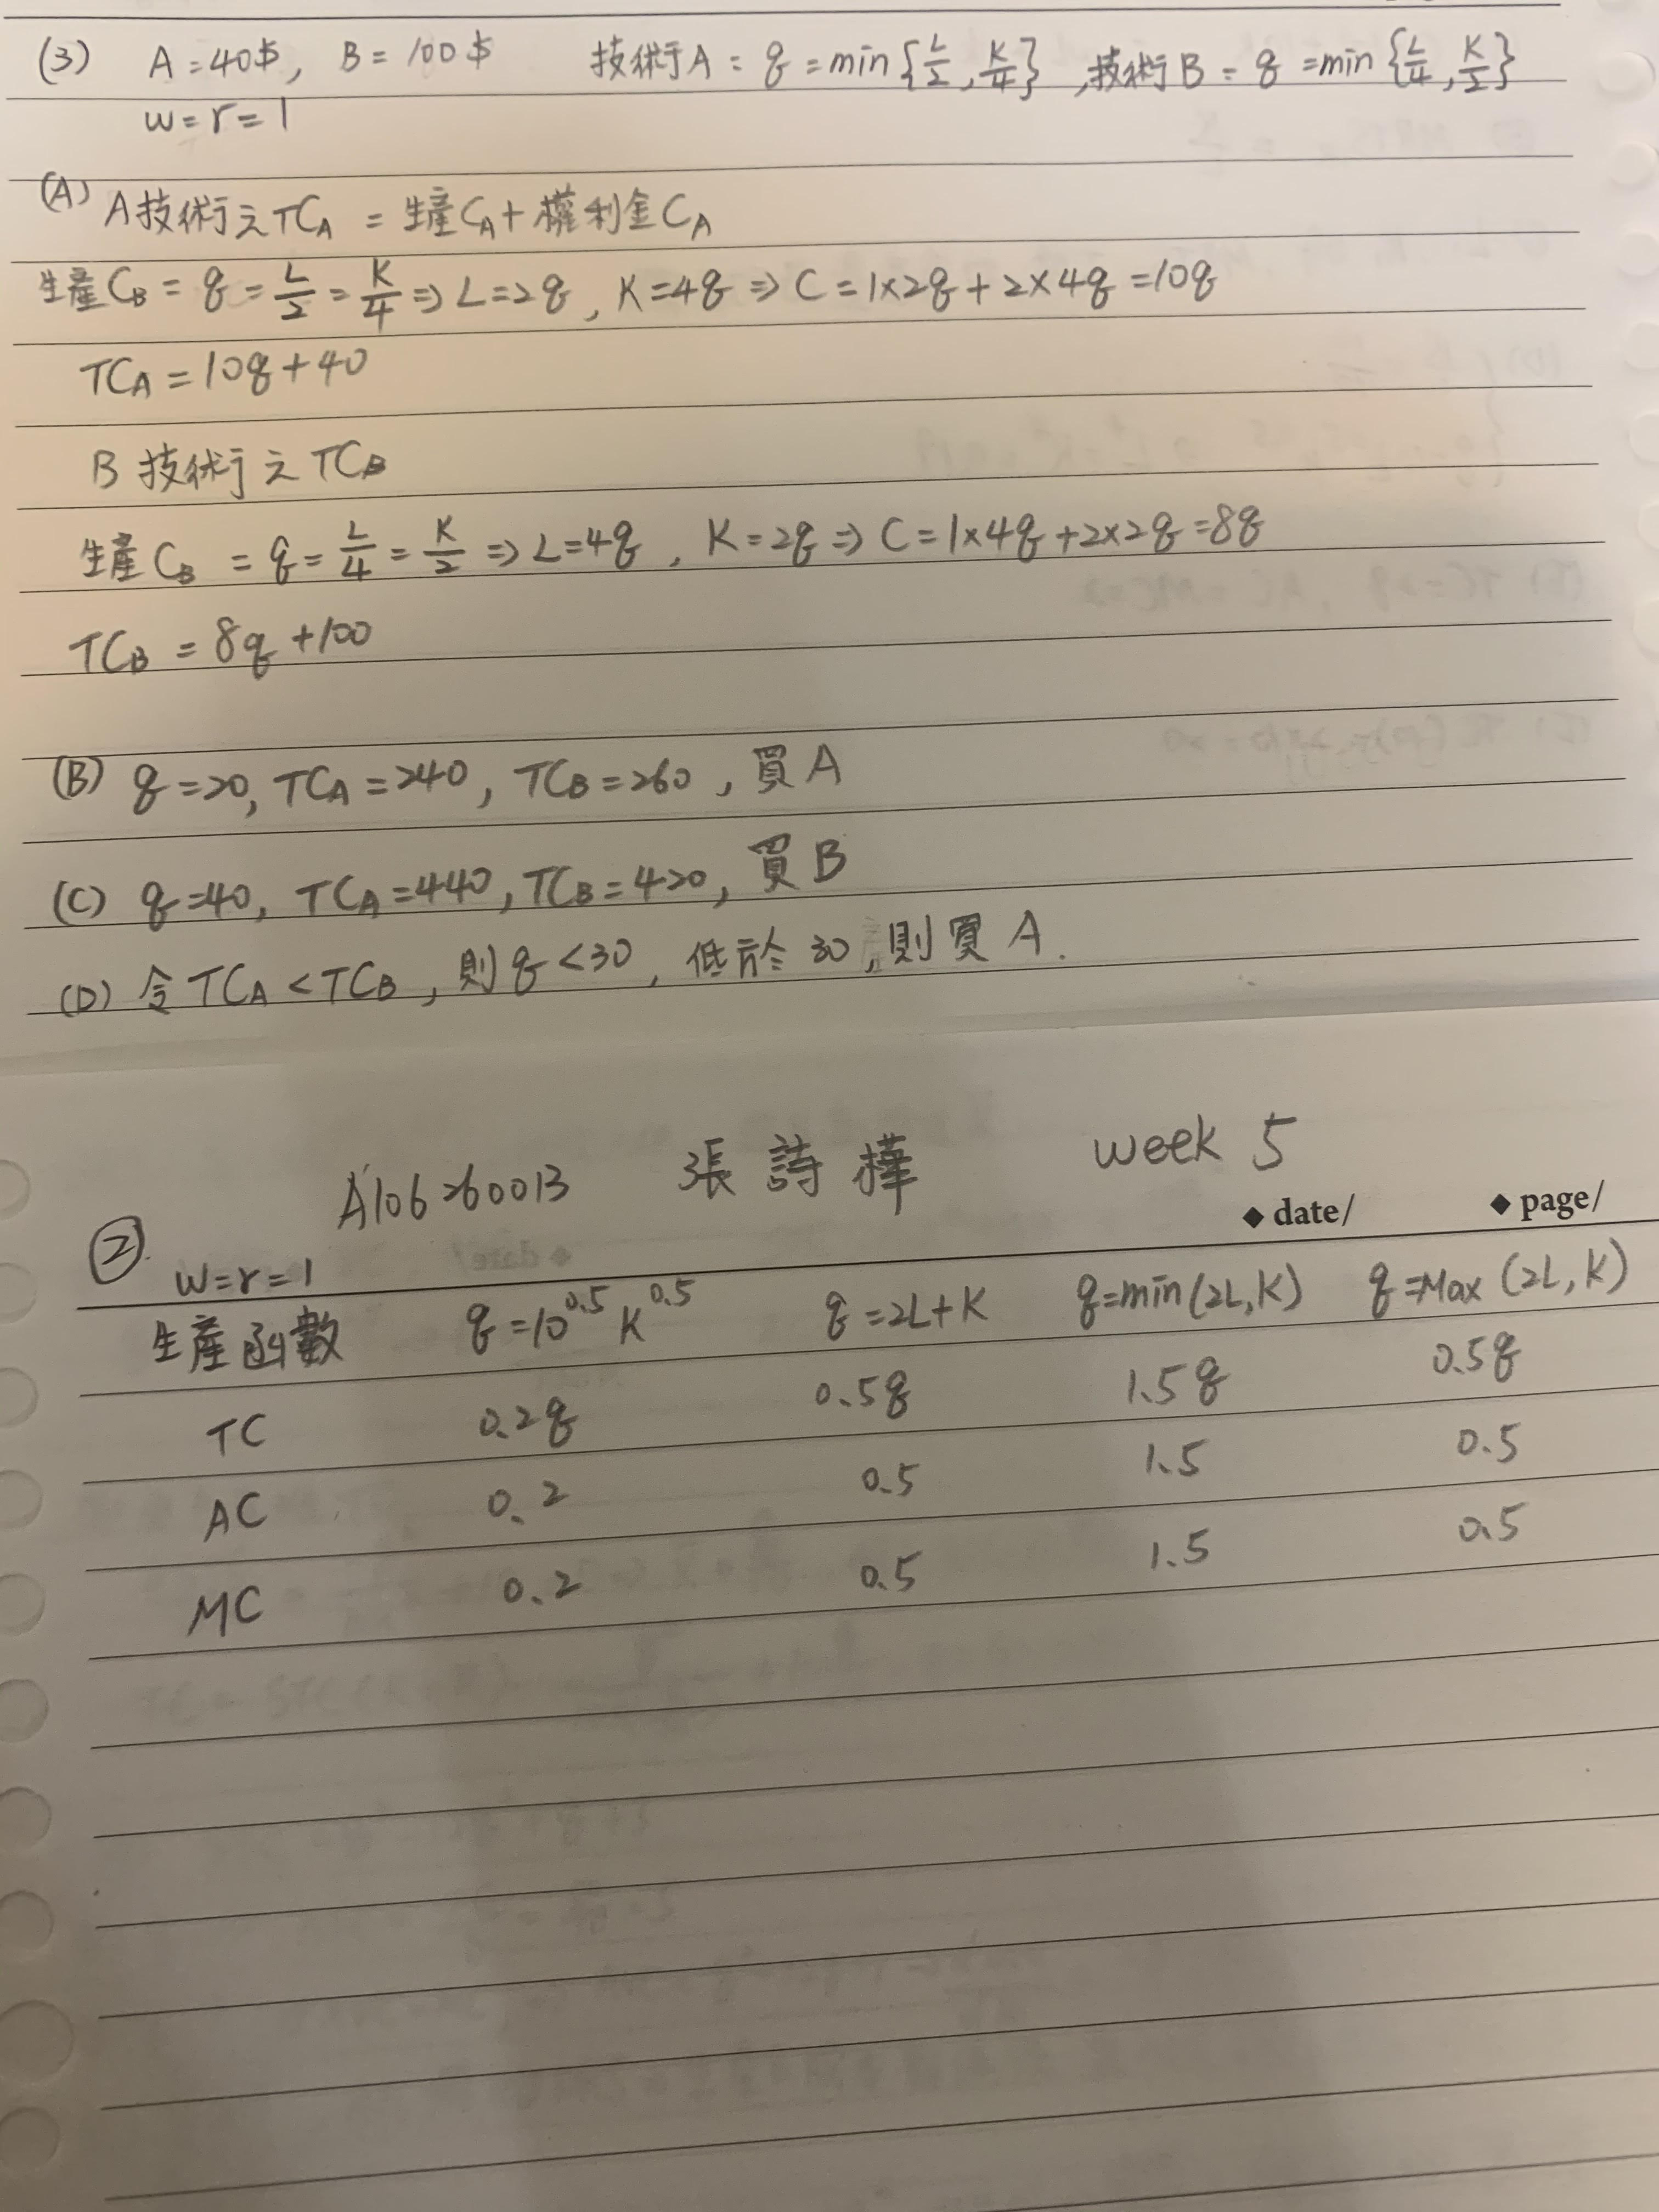 (3) A=40$, B=100$ 技術A: q=min{L/2, K/4}, 技術B: q=min{L/4, K/2}
w=r=1
(A) A技術之TCA = 生產CA+權利金CA
生產CB = q = L/2 = K/4 ⇒ L=2q, K=4q ⇒ C=1×2q+2×4q=10q
TCA=10q+40
B技術之TCB
生產CB = q = L/4 = K/2 ⇒ L=4q, K=2q ⇒ C=1×4q+2×2q=8q
TCB = 8q+100
(B) q=20, TCA=240, TCB=260, 買A
(C) q=40, TCA=440, TCB=420, 買B
(D) 令TCA<TCB, 則q<30, 低於30, 則買A.
A106260013 張詩樺 week 5
◆ date/ ◆ page/
② w=r=1
生產函數 q=10^0.5 K^0.5 q=2L+K q=min(2L,K) q=Max(2L,K)
TC 0.2q 0.5q 1.5q 0.5q
AC 0.2 0.5 1.5 0.5
MC 0.2 0.5 1.5 0.5